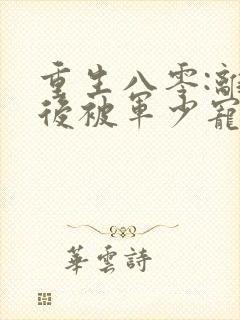 重生八零:離
後被軍少寵
華雲詩